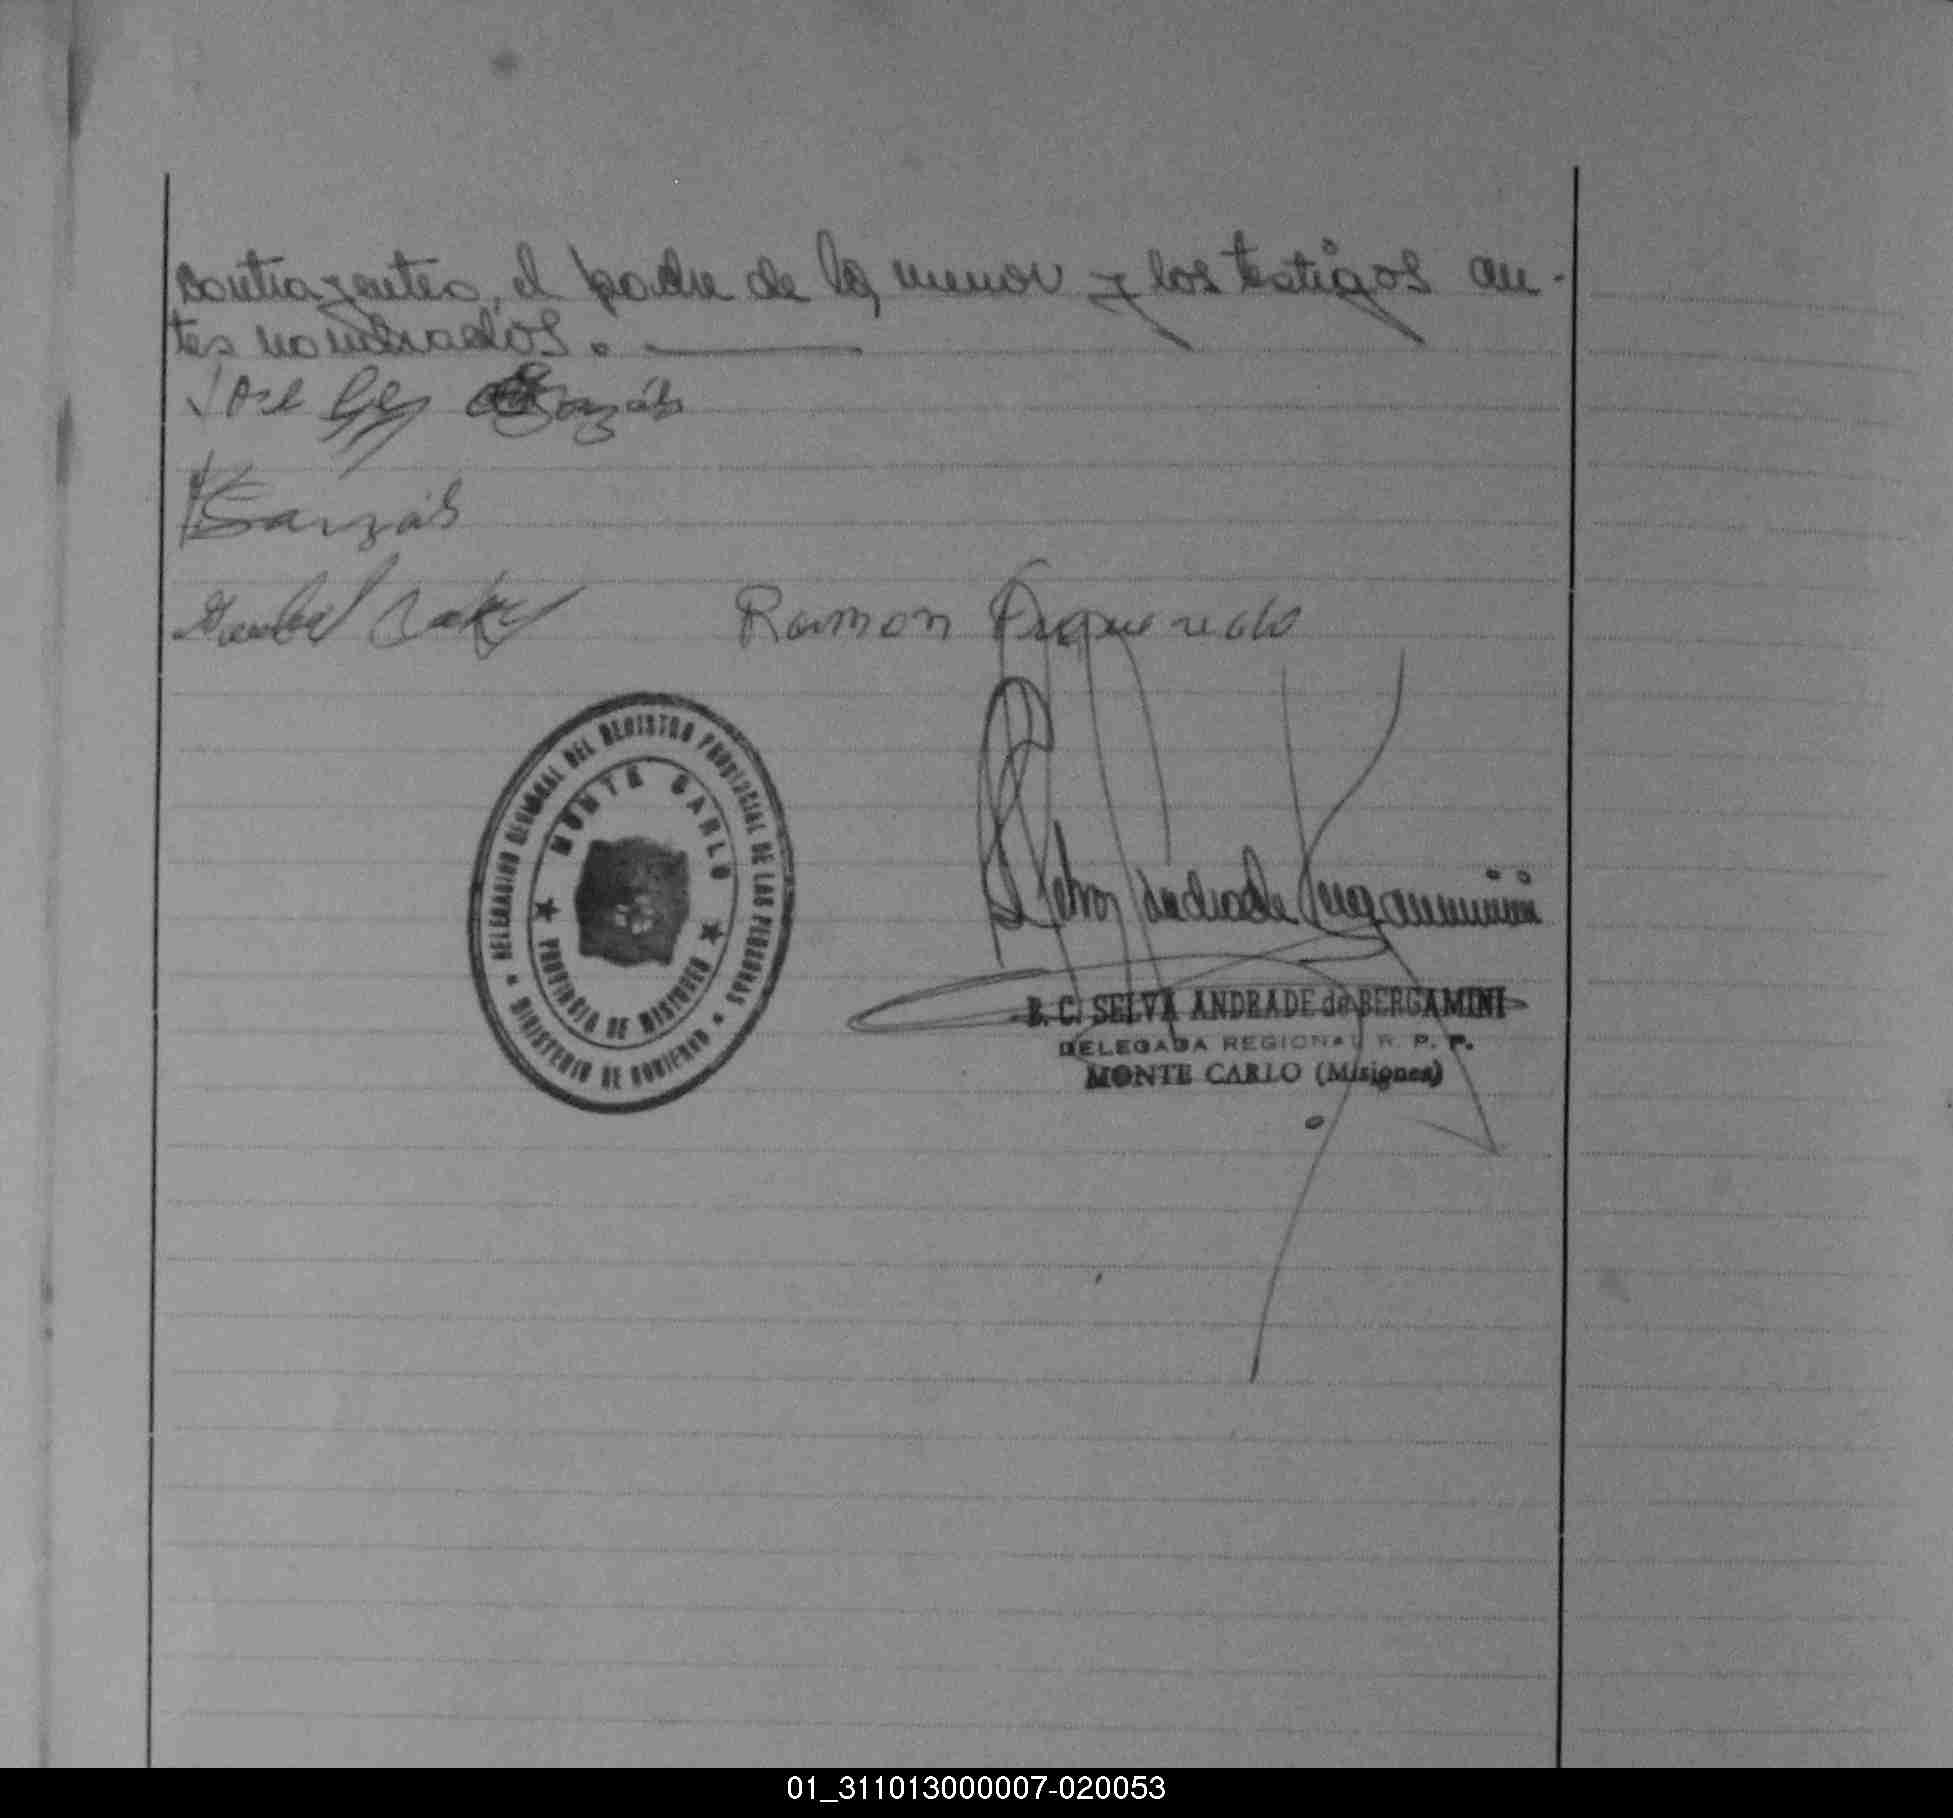 contrayentes, el padre de la menor y los testigos an-
tes nombrados.
José
Ramon Figueredo
DELEGACION REGIONAL DEL REGISTRO PROVINCIAL DE LAS PERSONAS
MONTE CARLO
PROVINCIA DE MISIONES
MINISTERIO DE GOBIERNO
Selva Andrade Bergamini
B. C. SELVA ANDRADE de BERGAMINI
DELEGADA REGIONAL R. P. P.
MONTE CARLO (Misiones)
01_311013000007-020053